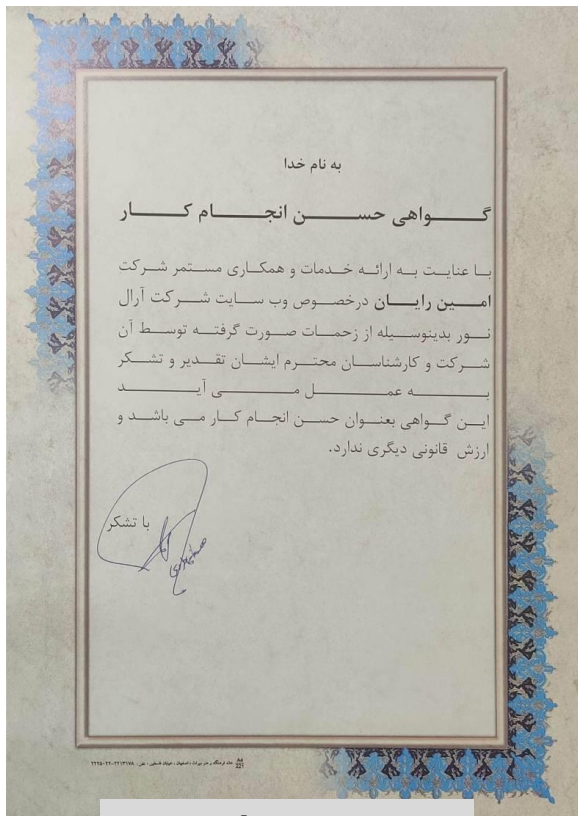 به نام خدا
گواهی حسن انجام کار
با عنایت به ارائه خدمات و همکاری مستمر شرکت
امین رایان درخصوص وب سایت شرکت آرال
نور بدینوسیله از زحمات صورت گرفته توسط آن
شرکت و کارشناسان محترم ایشان تقدیر و تشکر
به عمل می آید
این گواهی بعنوان حسن انجام کار می باشد و
ارزش قانونی دیگری ندارد.
با تشکر
خانه فرهنگ و هنر میراث : اصفهان ، خیابان فلسطین ، تلفن :